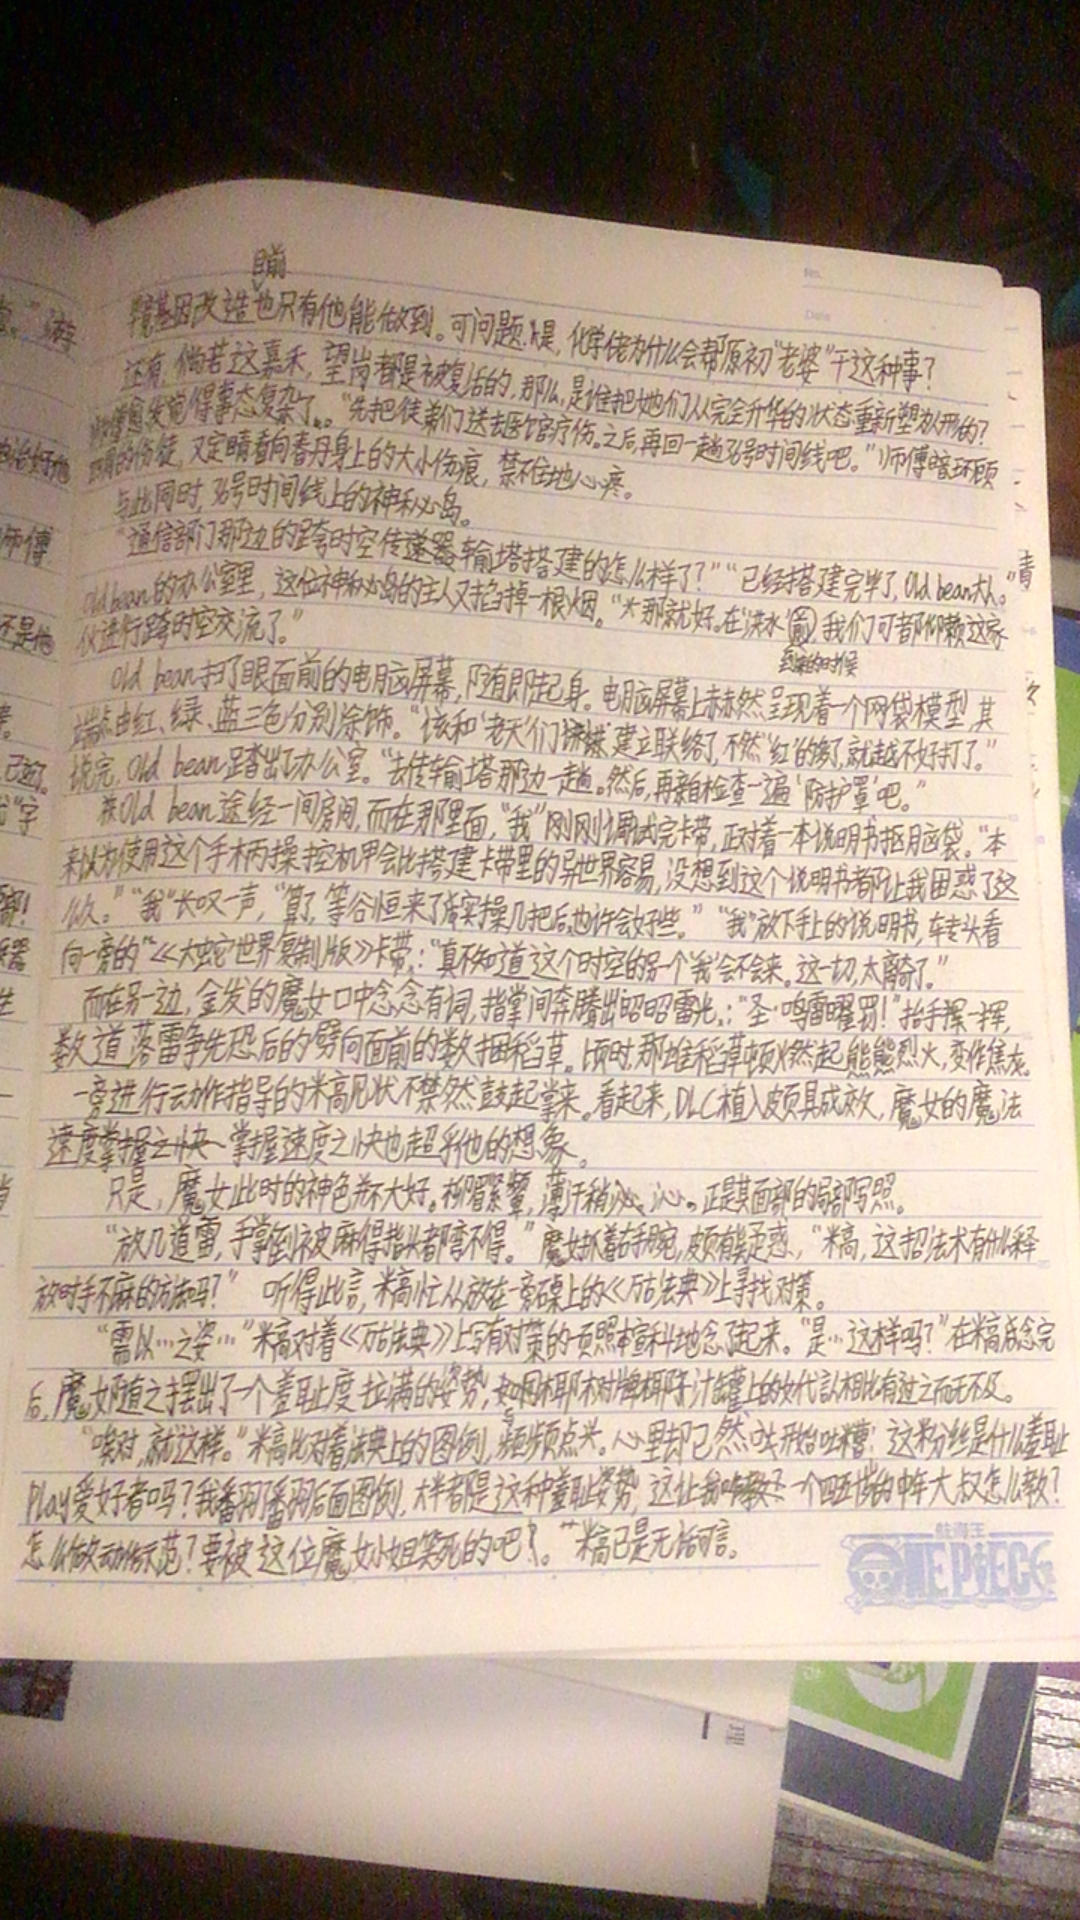 目前
基因改造也只有他能做到。可问题是，化学佬为什么会帮原初“老婆”干这种事？
还有，倘若这嘉禾，望岗都是被复活的，那么，是谁把她们从完全升华的状态重新塑为人形的？
发觉得事态复杂了。“先把徒弟们送去医馆疗伤。之后，再回一趟36号时间线吧。”师傅环顾
的伤徒，又定睛看向春丹身上的大小伤痕，禁不住地心疼。
与此同时，36号时间线上的神秘岛。
“通信部门那边的跨时空传输塔搭建的怎么样了？”“已经搭建完毕了，Old bean大人。”
Old bean的办公室里，这位神秘岛的主人又掐掉一根烟。“那就好。在‘洪水’我们可都仰赖这家
到来的时候
伙进行跨时空交流了。”
Old bean扫了眼面前的电脑屏幕，随即起身。电脑屏幕上赫然呈现着一个网袋模型，其
端点由红、绿、蓝三色分别涂饰。“该和‘老天’们建立联络了，不然‘红’的够了，就越不好打了。”
说完，Old bean踏出了办公室。“去传输塔那边一趟。然后，再亲自检查一遍‘防护罩’吧。”
Old bean途经一间房间，而在那里面，“我”刚刚调试完卡带，正对着一本说明书抠脑袋。“本
来以为使用这个手柄操控机甲会比搭建卡带里的异世界容易，没想到这个说明书都让我困惑了这
么久。”“我”长叹一声，“算了，等谷恒来了后实操几把后，也许会好些。”“我”放下手上的说明书，转头看
向一旁的“《大蛇世界复制版》卡带，：“真不知道这个时空的另一个‘我’会不会来。这一切，太离奇了。”
而在另一边，金发的魔女口中念念有词，指掌间奔腾出昭昭雷光，：“圣·鸣雷曜罚！”抬手挥一挥，
数道落雷争先恐后的劈向面前的数捆稻草。顷时，那堆稻草顿燃起熊熊烈火，变作焦灰。
一旁进行动作指导的米高见状不禁然鼓起掌来。看起来，DLC植入颇具成效，魔女的魔法
速度掌握之快 掌握速度之快也超乎他的想象。
只是，魔女此时的神色并不大好。柳眉紧颦，薄汗稍沁。正是其面部的局部写照。
“放几道雷，手掌倒被麻得指头都弯不得。”魔女抓着右手腕，颇有疑惑，“米高，这招法术有什么释
放时手不麻的方法吗？”听得此言，米高忙从放在一旁石桌上的《万古法典》上寻找对策。
“需以…之姿…”米高对着《万古法典》上写有对策的一页照本宣科地念了起来。“是…这样吗？”在米高念完
后，魔女随之摆出了一个羞耻度拉满的姿势，与椰树牌椰汁罐上的女代言人相比有过之而无不及。
“唉对，就这样。”米高比对着法典上的图例，频频点头。心里却已然开始吐糟：这粉丝是什么羞耻
Play爱好者吗？我翻翻后面图例，大半都是这种羞耻姿势，这让我一个四五十岁的中年大叔怎么教？
怎么做动作示范？要被这位魔女小姐笑死的吧！。”米高已是无话可言。
航海王
ONE PIECE
No.
Date